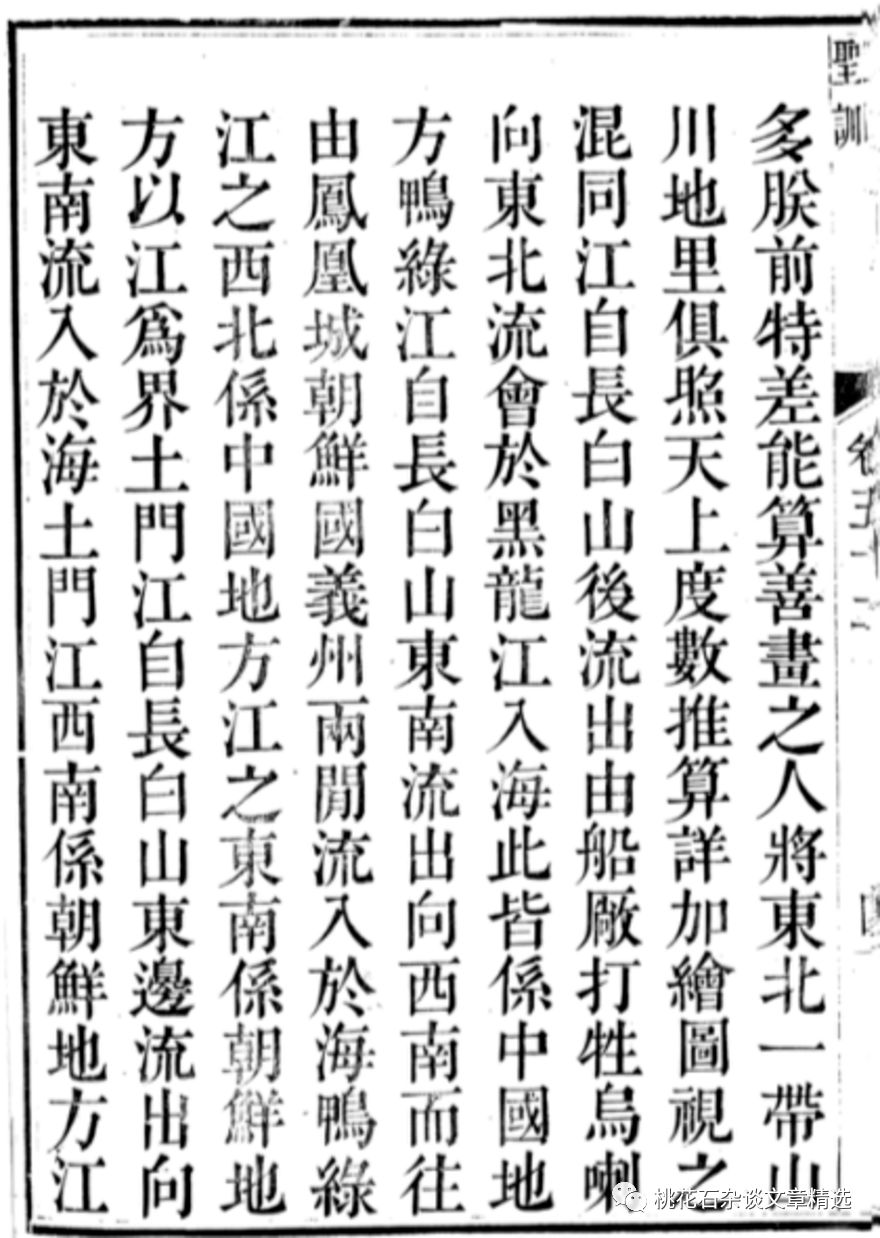 聖訓
多朕前特差能算善畫之人將東北一帶山
川地里俱照天上度數推算詳加繪圖視之
混同江自長白山後流出由船厰打牲烏喇
向東北流會於黑龍江入海此皆係中國地
方鴨綠江自長白山東南流出向西南而往
由鳳凰城朝鮮國義州兩閒流入於海鴨綠
江之西北係中國地方江之東南係朝鮮地
方以江爲界土門江自長白山東邊流出向
東南流入於海土門江西南係朝鮮地方江
桃花石杂谈文章精选